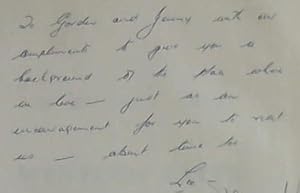 To Gordon and Jenny with our
compliments to give you a
background of the place where
we live — just as an
encouragement for you to visit
us — about time too